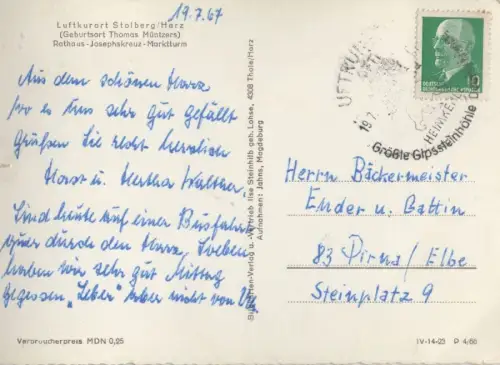 19.7.67
Luftkurort Stolberg/Harz
(Geburtsort Thomas Müntzers)
Rathaus-Josephskreuz-Marktturm
Aus dem schönen Harz
wo es uns sehr gut gefällt
Grüßen Sie recht herzlich
Horst u. Hertha Walther.
Sind heute auf einer Busfahrt
quer durch den Harz. Soeben
haben wir sehr gut Mittag
gegessen „Leber" aber nicht von
Verbraucherpreis MDN 0,25
Bildkarten-Verlag u. -Vertrieb Ilse Steinhilb geb. Lohse, 4308 Thale/Harz
Aufnahmen: Jahns, Magdeburg
10
LUFTKUR
19.7.
HEIMKEHLE
Größte Gipssteinhöhle
Herrn Bäckermeister
Ender u. Gattin
83 Pirna/Elbe
Steinplatz 9
IV-14-23 P 4/66